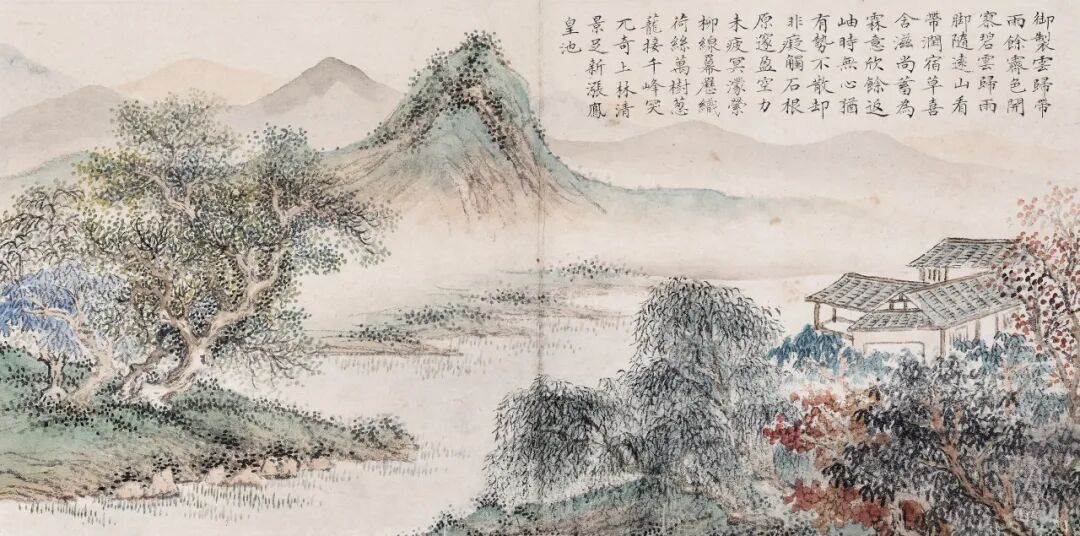 御製雲歸帶
雨餘霽色開
寥碧雲歸雨
脚隨遠山看
帶潤宿草喜
含滋尚蓄為
霖意欣餘返
岫時無心猶
有勢不散却
非癡觸石根
原邃盈空力
未疲冥濛縈
柳線羃歷織
荷絲萬樹蔥
蘢接千峰突
兀奇上林清
景足新漲鳳
皇池